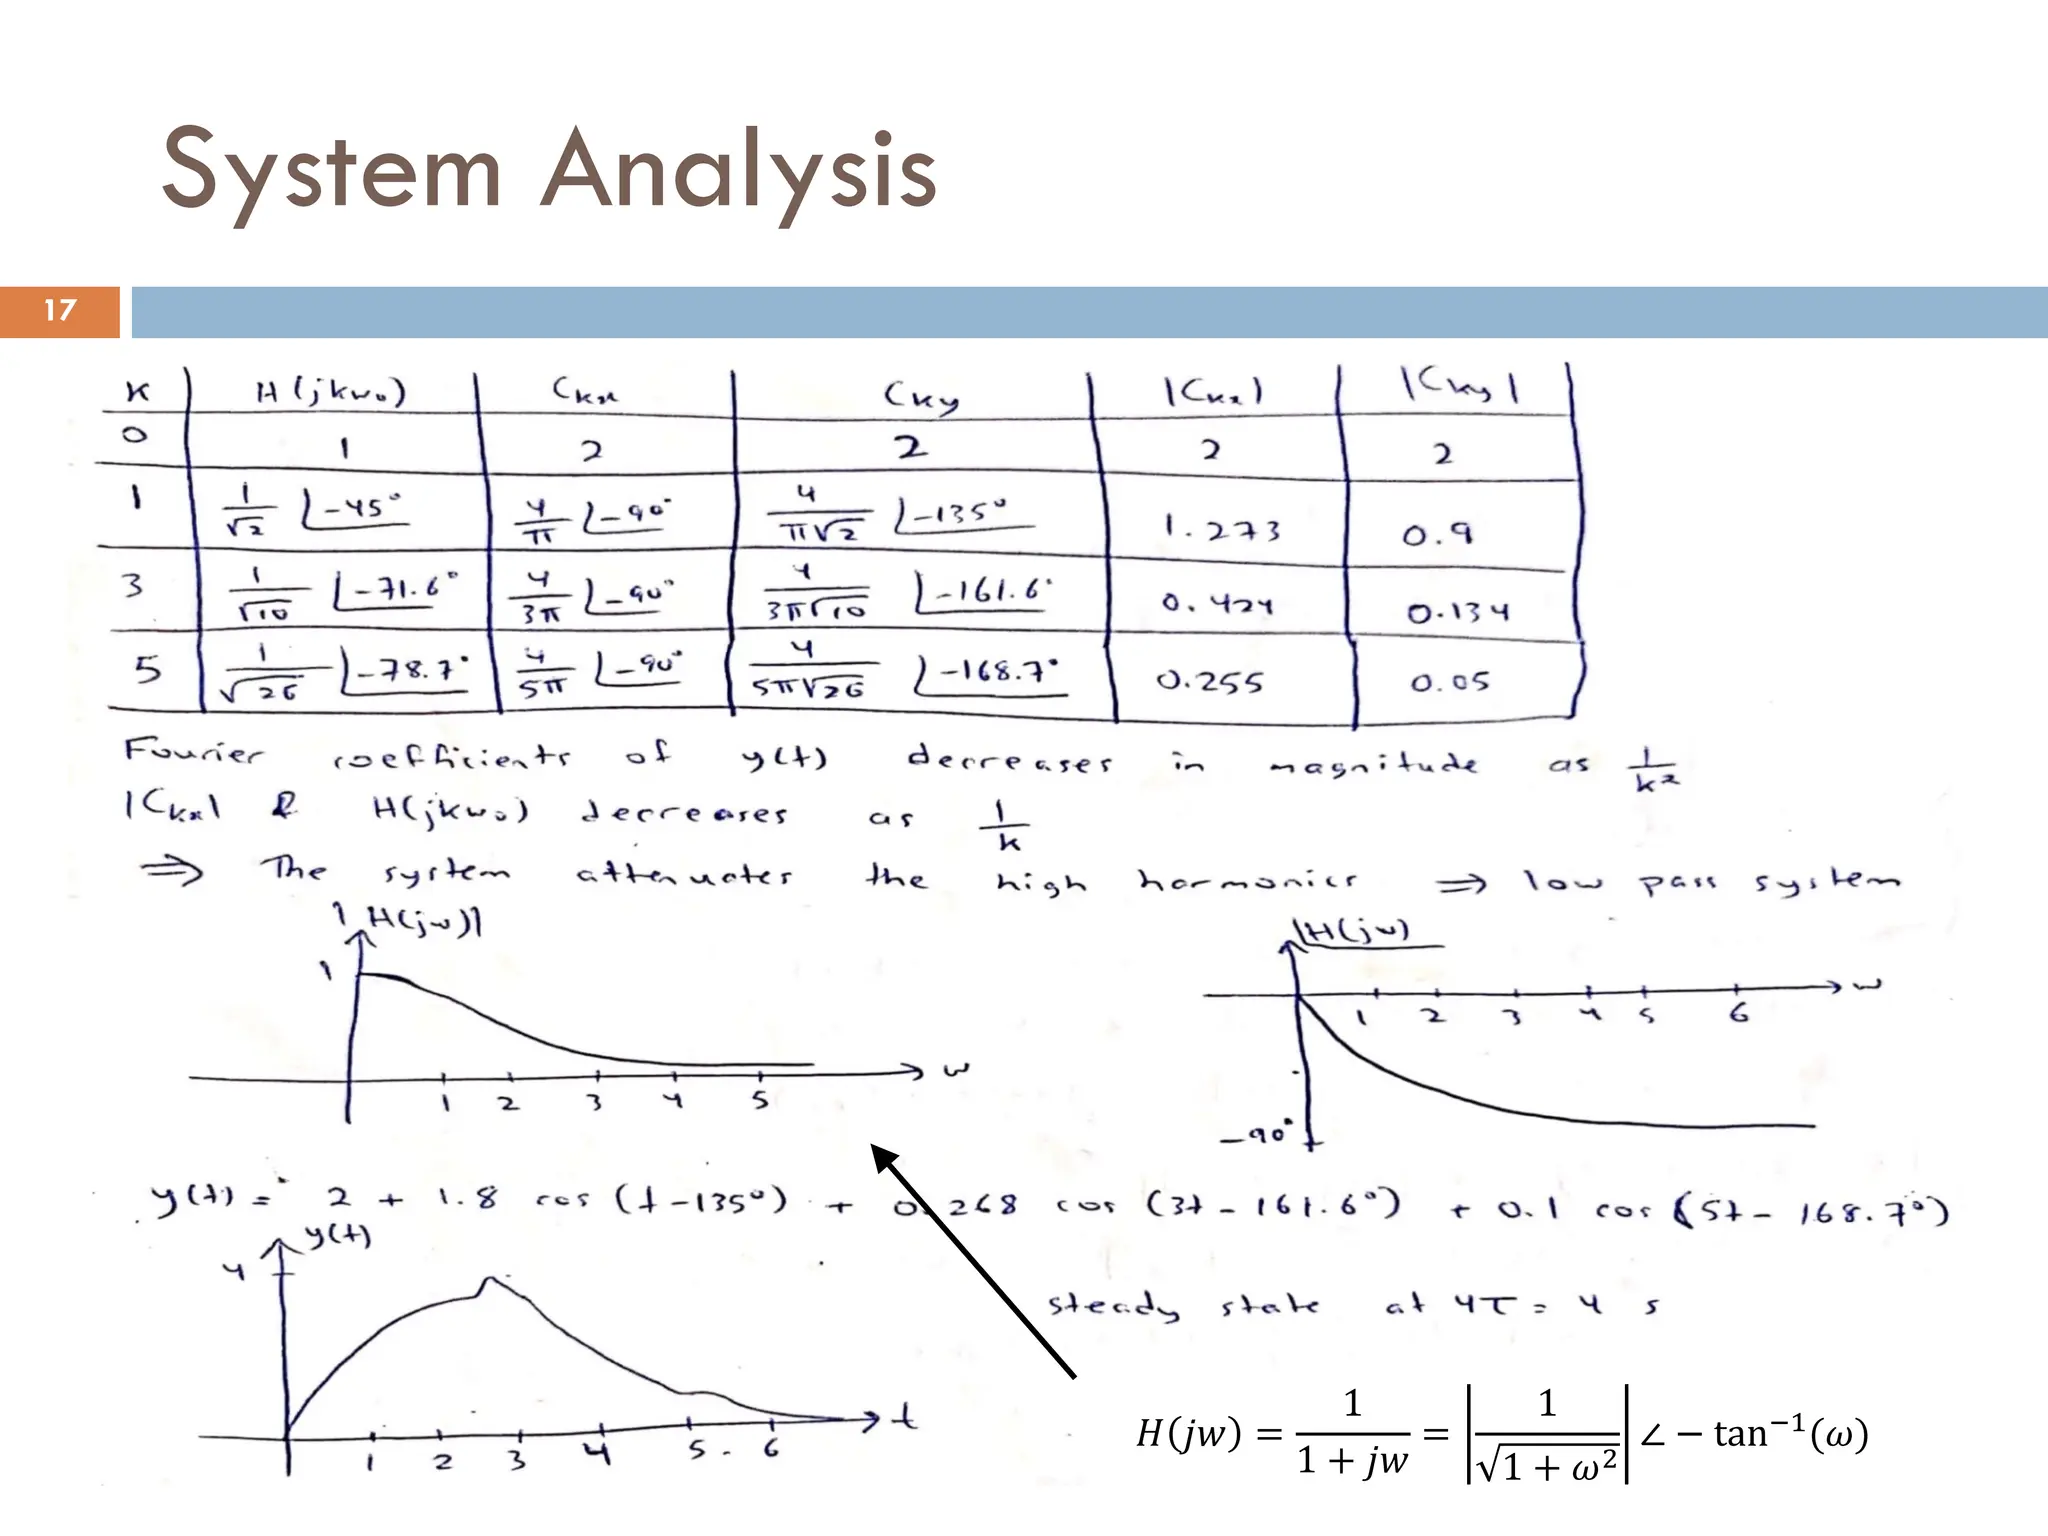 System Analysis
17
K | H(jkω₀) | Ckx | Cky | |Ckx| | |Cky|
0 | 1 | 2 | 2 | 2 | 2
1 | 1/√2 ∠-45° | 4/π ∠-90° | 4/π√2 ∠-135° | 1.273 | 0.9
3 | 1/√10 ∠-71.6° | 4/3π ∠-90° | 4/3π√10 ∠-161.6° | 0.424 | 0.134
5 | 1/√26 ∠-78.7° | 4/5π ∠-90° | 4/5π√26 ∠-168.7° | 0.255 | 0.05
Fourier coefficients of y(t) decreases in magnitude as 1/k²
|Ckx| & H(jkω₀) decreases as 1/k
⇒ The system attenuates the high harmonics ⇒ low pass system
|H(jω)|
1
1 2 3 4 5 ω
∠H(jω)
1 2 3 4 5 6 ω
-90°
y(t) = 2 + 1.8 cos (t-135°) + 0.268 cos (3t - 161.6°) + 0.1 cos (5t - 168.7°)
y(t)
4
1 2 3 4 5 6 t
steady state at 4τ = 4 s
H(jw) = 1/(1 + jw) = |1/√(1 + ω²)| ∠ − tan⁻¹(ω)